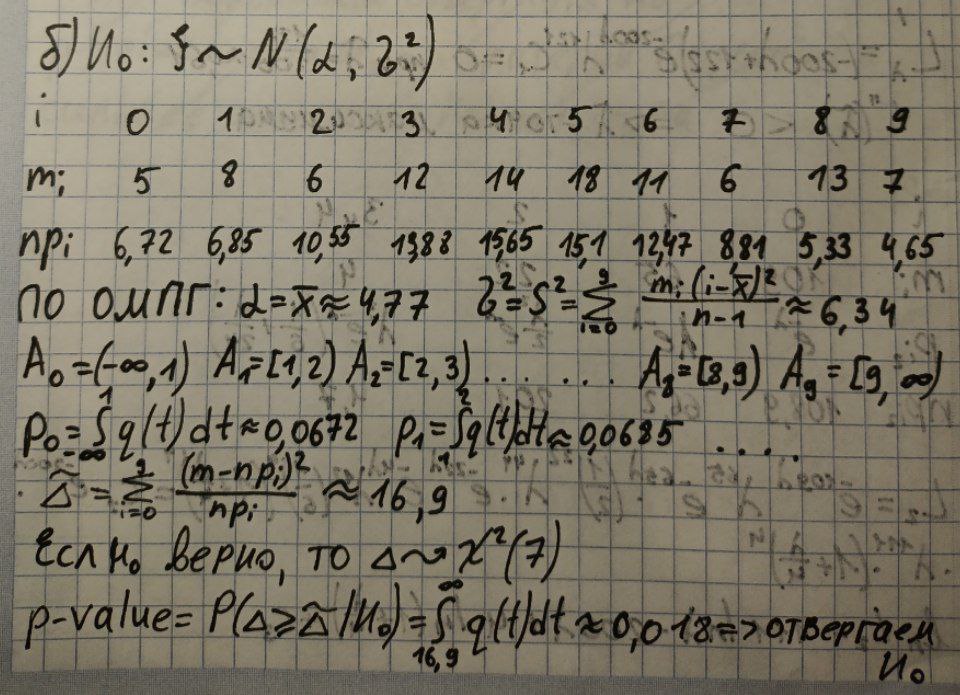 б) H₀: ξ ~ N(α, σ²)
i 0 1 2 3 4 5 6 7 8 9
mᵢ 5 8 6 12 14 18 11 6 13 7
npᵢ 6,72 6,85 10,55 13,88 15,65 15,1 12,47 8,81 5,33 4,65
ПО ОМПГ: α = x̄ ≈ 4,77 σ² = S² = ∑_{i=0}^{9} mᵢ(i-x̄)²/(n-1) ≈ 6,34
A₀ = (-∞, 1) A₁ = [1, 2) A₂ = [2, 3) . . . . . . . A₈ = [8, 9) A₉ = [9, ∞)
p₀ = ∫_{-∞}^{1} q(t)dt ≈ 0,0672 p₁ = ∫_{1}^{2} q(t)dt ≈ 0,0685 . . . . .
Δ̃ = ∑_{i=0}^{9} (m-npᵢ)²/npᵢ ≈ 16,9
Если H₀ верно, то Δ ⇝ χ²(7)
p-value = P(Δ ≥ Δ̃ | H₀) = ∫_{16,9}^{∞} q(t)dt ≈ 0,018 => отвергаем
H₀